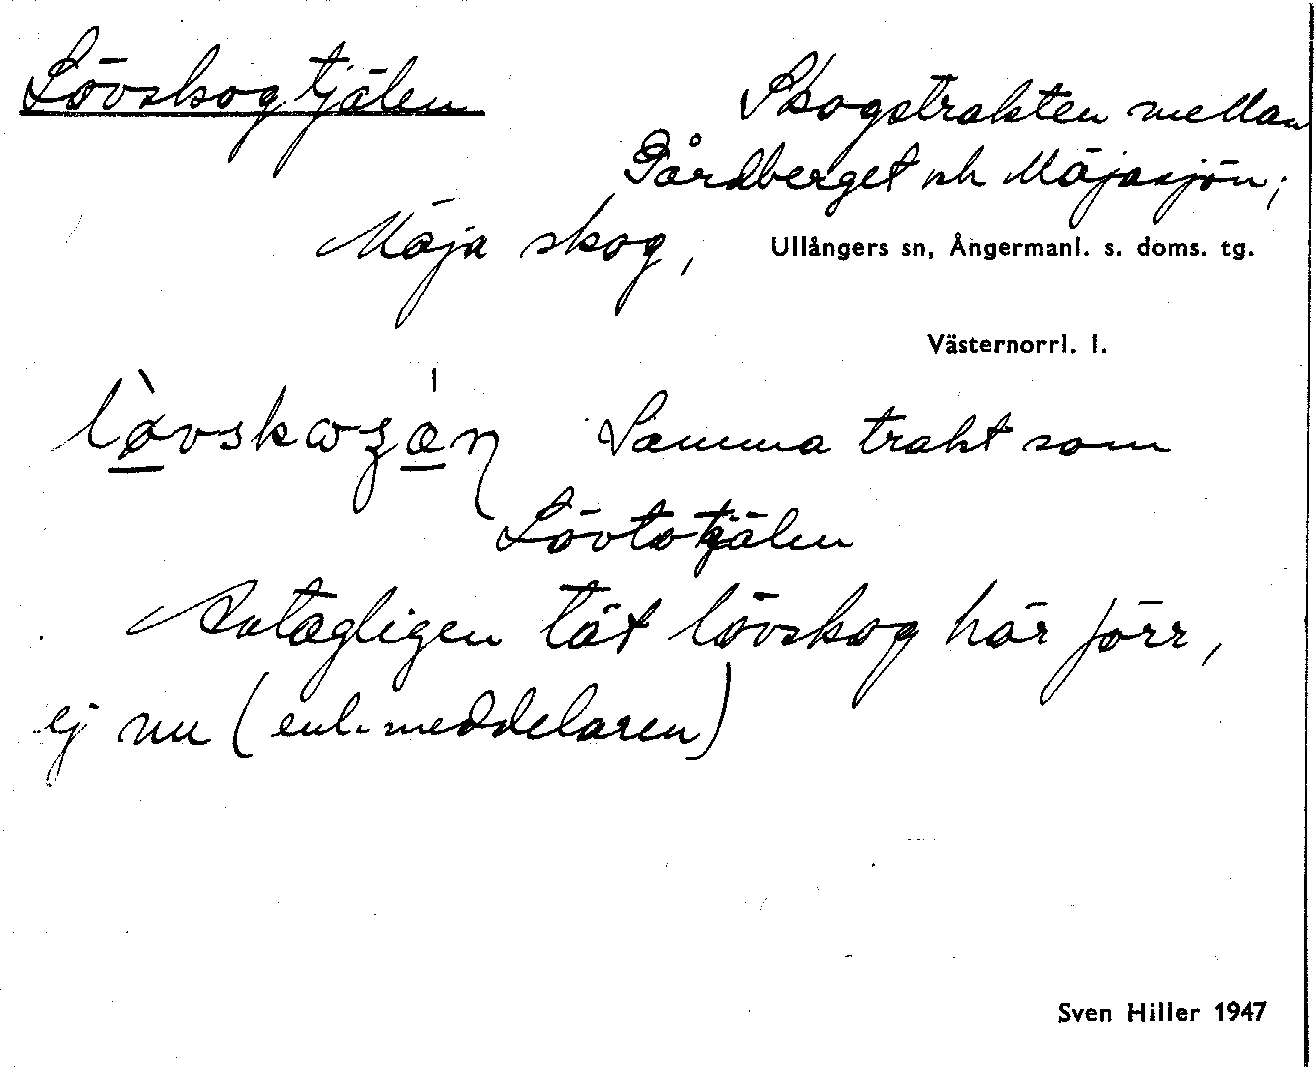 Lövskogtjälen
Skogstrakten mellan
Gårdberget och Mäjasjön;
Mäja skog,
Ullångers sn, Ångermanl. s. doms. tg.
Västernorrl. l.
Samma trakt som
Lövtotjälen
Antagligen tät lövskog här förr,
ej nu (enl. meddelaren)
Sven Hiller 1947